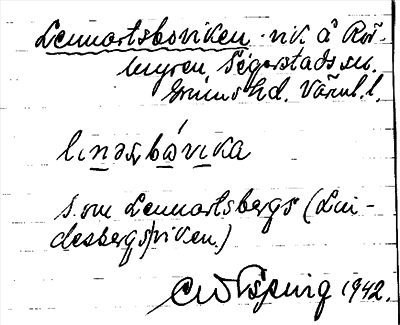 Lennartsboviken. vik å Rör-
myren, Segerstads sn.
Grums hd. Värml. l.
linəsbåvika
s. om Lennartsbergs (Lin-
desbergsviken.)
1942.